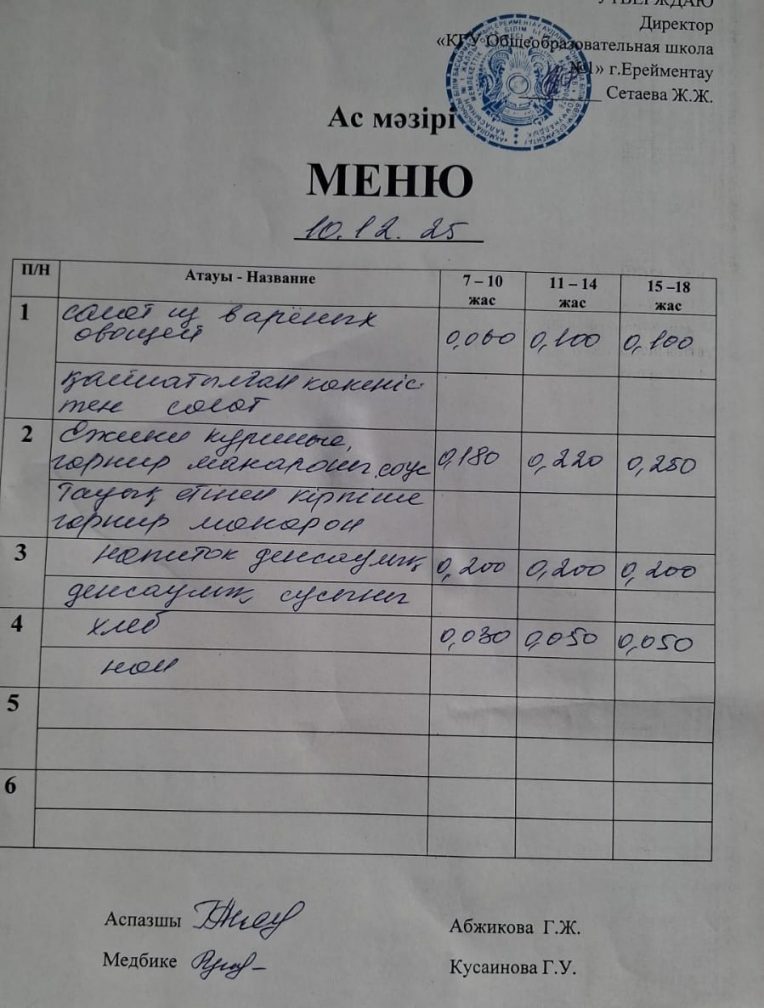 УТВЕРЖДАЮ
Директор
«КГУ Общеобразовательная школа
№1» г.Ерейментау
Сетаева Ж.Ж.
Ас мәзірі
МЕНЮ
10.12.25
П/Н Атауы - Название 7 – 10 жас 11 – 14 жас 15 –18 жас
1 салат из варёных
овощей 0,060 0,100 0,100
қайнатылған көкөніс-
тен салат
2 Ёжики куриные,
гарнир макароны, соус 0,180 0,220 0,250
Тауық етінен кірпіше
гарнир макарон
3 напиток денсаулық 0,200 0,200 0,200
денсаулық сусыны
4 хлеб 0,030 0,050 0,050
нан
5
6
Аспазшы Абжикова Г.Ж.
Медбике Кусаинова Г.У.